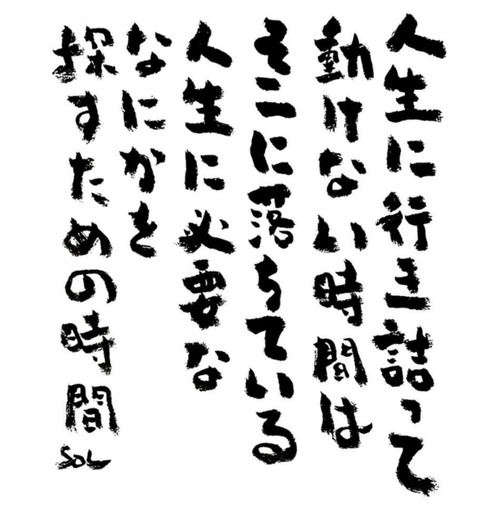 人生に行き詰って
動けない時間は
そこに落ちている
人生に必要な
なにかを
探すための時間
SOL